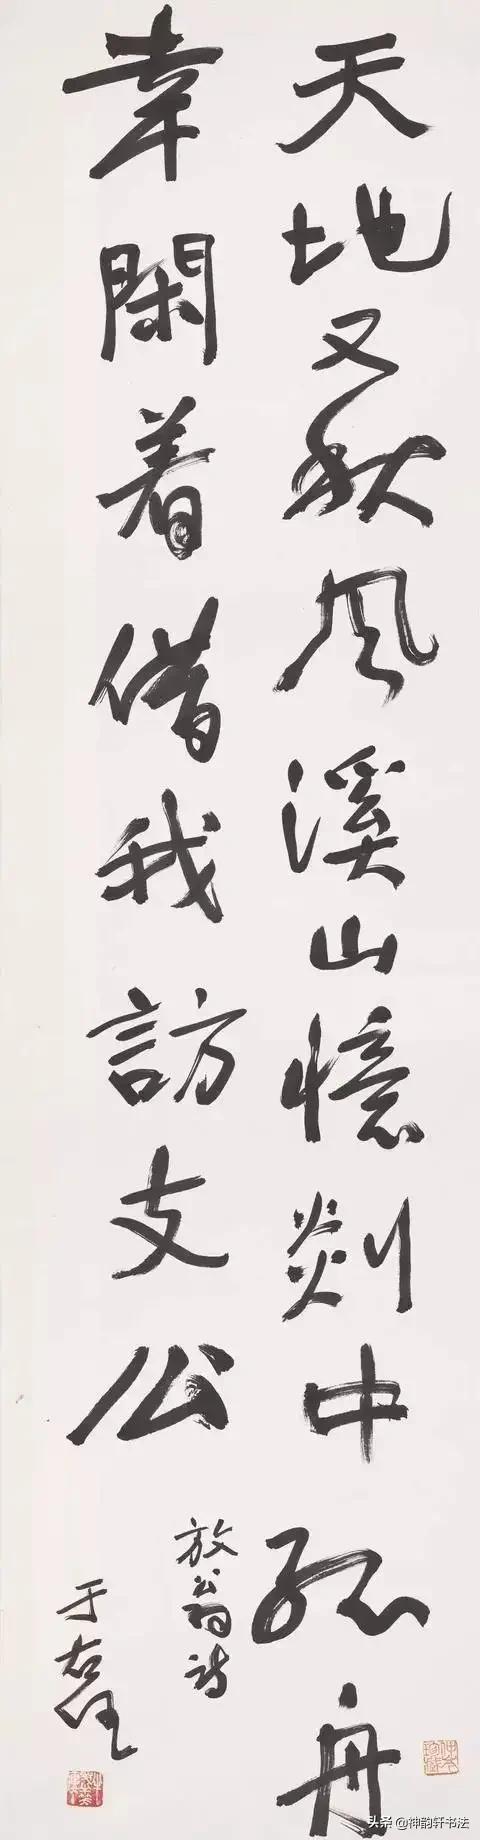 天地又秋风溪山憶剡中孤舟
幸閑着借我訪支公
放翁詩
于右任
头条@神韵轩书法